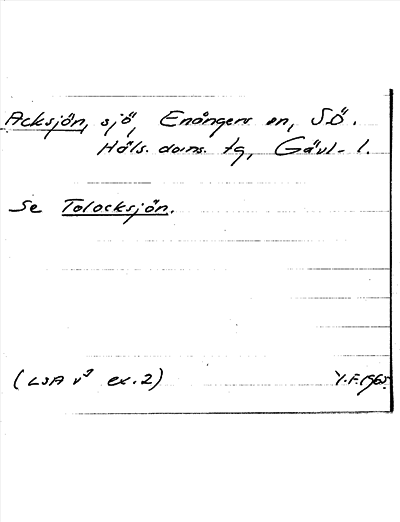 Acksjön, sjö, Enångers sn, SÖ.
Häls. doms. tg, Gävl. l.
Se Tolocksjön.
(LSA v⁹ ex. 2)
Y.F. 1965.